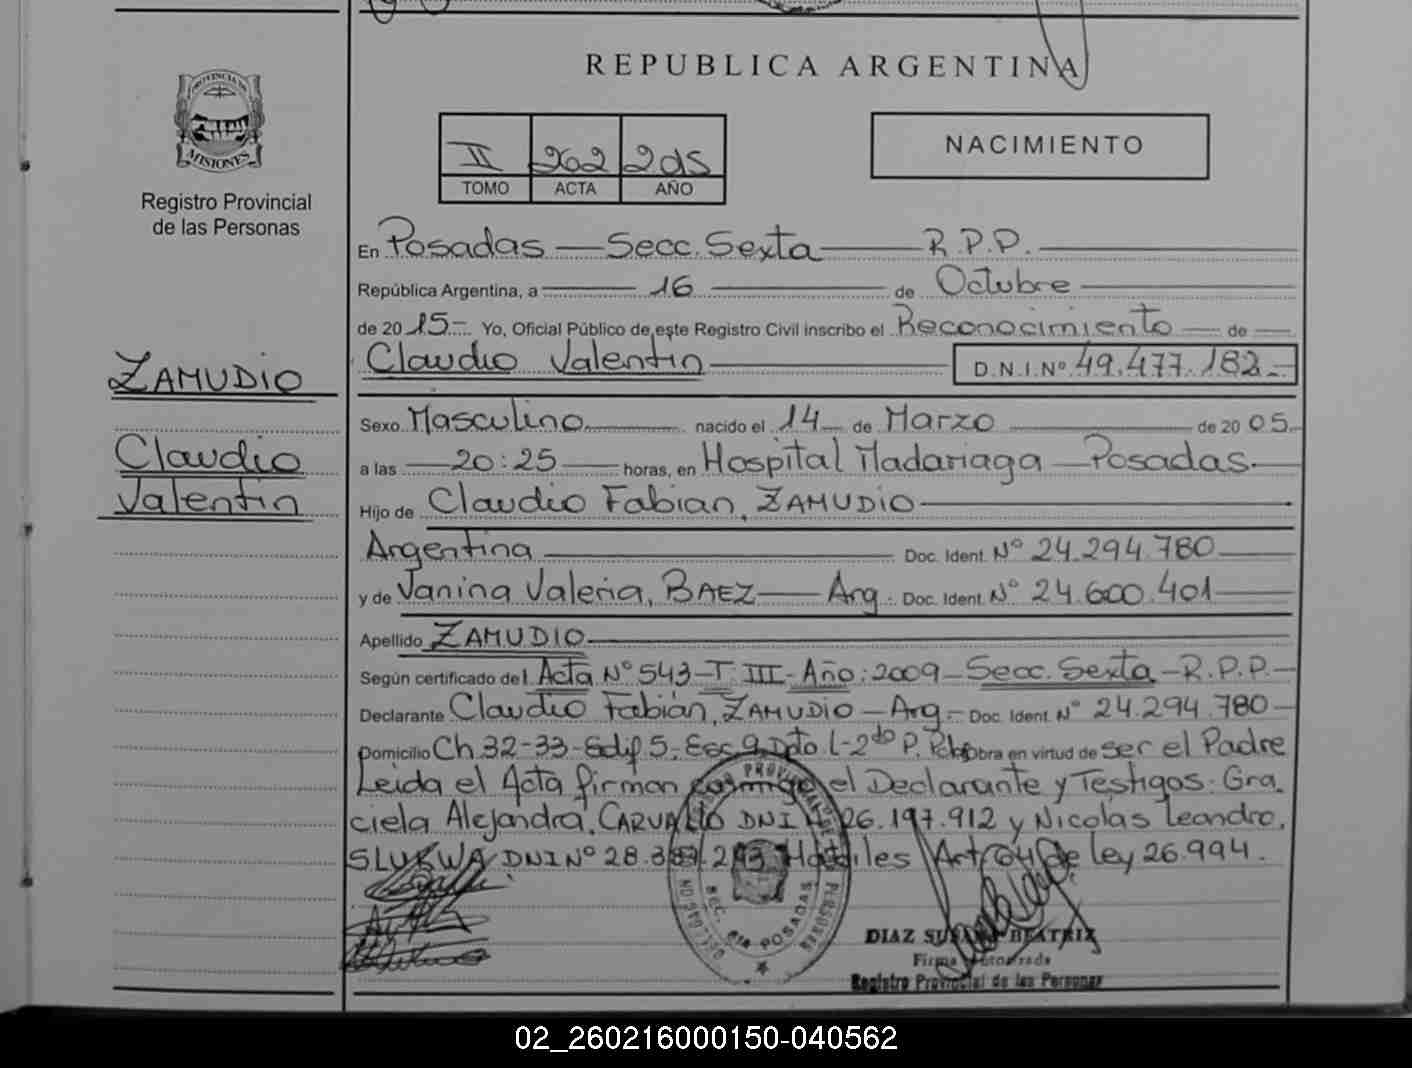 REPUBLICA ARGENTINA
PROVINCIA DE
MISIONES
Registro Provincial
de las Personas
II 202 2015
TOMO ACTA AÑO
NACIMIENTO
En Posadas — Secc. Sexta — R.P.P.
República Argentina, a 16 de Octubre
de 2015.- Yo, Oficial Público de este Registro Civil inscribo el Reconocimiento de
Claudio Valentin D.N.I.Nº 49.477.182.-
ZAMUDIO
Claudio
Valentin
Sexo Masculino nacido el 14 de Marzo de 2005.
a las 20:25 horas, en Hospital Madariaga — Posadas.
Hijo de Claudio Fabian, ZAMUDIO
Argentina Doc. Ident. Nº 24.294.780
y de Yanina Valeria, BAEZ — Arg. Doc. Ident. Nº 24.600.401
Apellido ZAMUDIO
Según certificado del Acta Nº 543 - T. III - Año: 2009 - Secc. Sexta - R.P.P.
Declarante Claudio Fabián, ZAMUDIO - Arg - Doc. Ident. Nº 24.294.780
Domicilio Ch. 32-33 - Edif. 5 - Esc. 9 Dpto. L - 2do P. obra en virtud de ser el Padre
Leida el Acta firman conmigo el Declarante y Testigos: Gra
ciela Alejandra, CARVALLO DNI Nº 26.197.912 y Nicolás Leandro,
SLUKWA DNI Nº 28. Habiles Art. de ley 26.994.
SEC. 6TA POSADAS
DIAZ SUSANA BEATRIZ
Firma Autorizada
Registro Provincial de las Personas
02_260216000150-040562